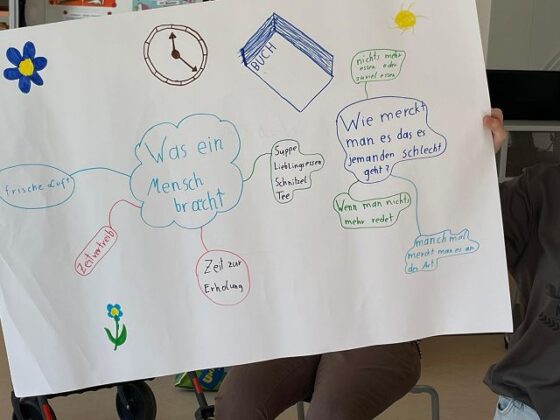 BUCH
Was ein
Mensch
bracht
frische Luft
Zeitvertreib
Zeit zur
Erholung
Suppe
Lieblingsessen
Schnitzel
Tee
nichts mehr
essen oder
zuviel essen
Wie merckt
man es das es
jemanden schlecht
geht?
Wenn man nichts
mehr redet
manchmal
merckt man es an
der Art